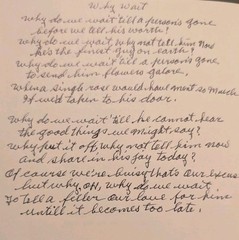 Why Wait
Why do we wait till a person's gone
before we tell his worth?
Why do we wait, why not tell him now
he's the finest guy on earth?
Why do we wait till a person's gone
to send him flowers galore,
When a single rose would have meant so much
If we'd taken to his door.
Why do we wait till he cannot hear
the good things we might say?
Why put it off, why not tell him now
And share in his joy today?
Of course we're busy that's our excuse
but why, oh, why do we wait
To tell a feller our love for him
until it becomes too late.